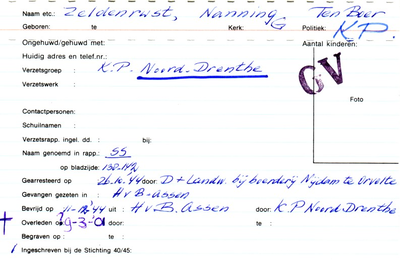 Naam etc.: Zeldenrust, Nanning G Ten Boer
Geboren: te Kerk: Politiek: K.P.
Ongehuwd/gehuwd met: Aantal kinderen:
Huidig adres en telef.nr.:
Verzetsgroep : K.P. Noord-Drenthe GV
Verzetswerk :
Foto
Contactpersonen:
Schuilnaam :
Verzetsrapp. ingel. dd. : bij:
Naam genoemd in rapp.: SS
op bladzijde:
Gearresteerd op 26.10.44 door: D + Landw. bij boerderij Nijdam te Orvelte
Gevangen gezeten in : H v B - Assen
Bevrijd op 11-12-'44 uit : H v. B. Assen door: K.P Noord-Drenthe
† Overleden op 9-3-'01 door: te :
Begraven op : te :
Ingeschreven bij de Stichting 40/45: